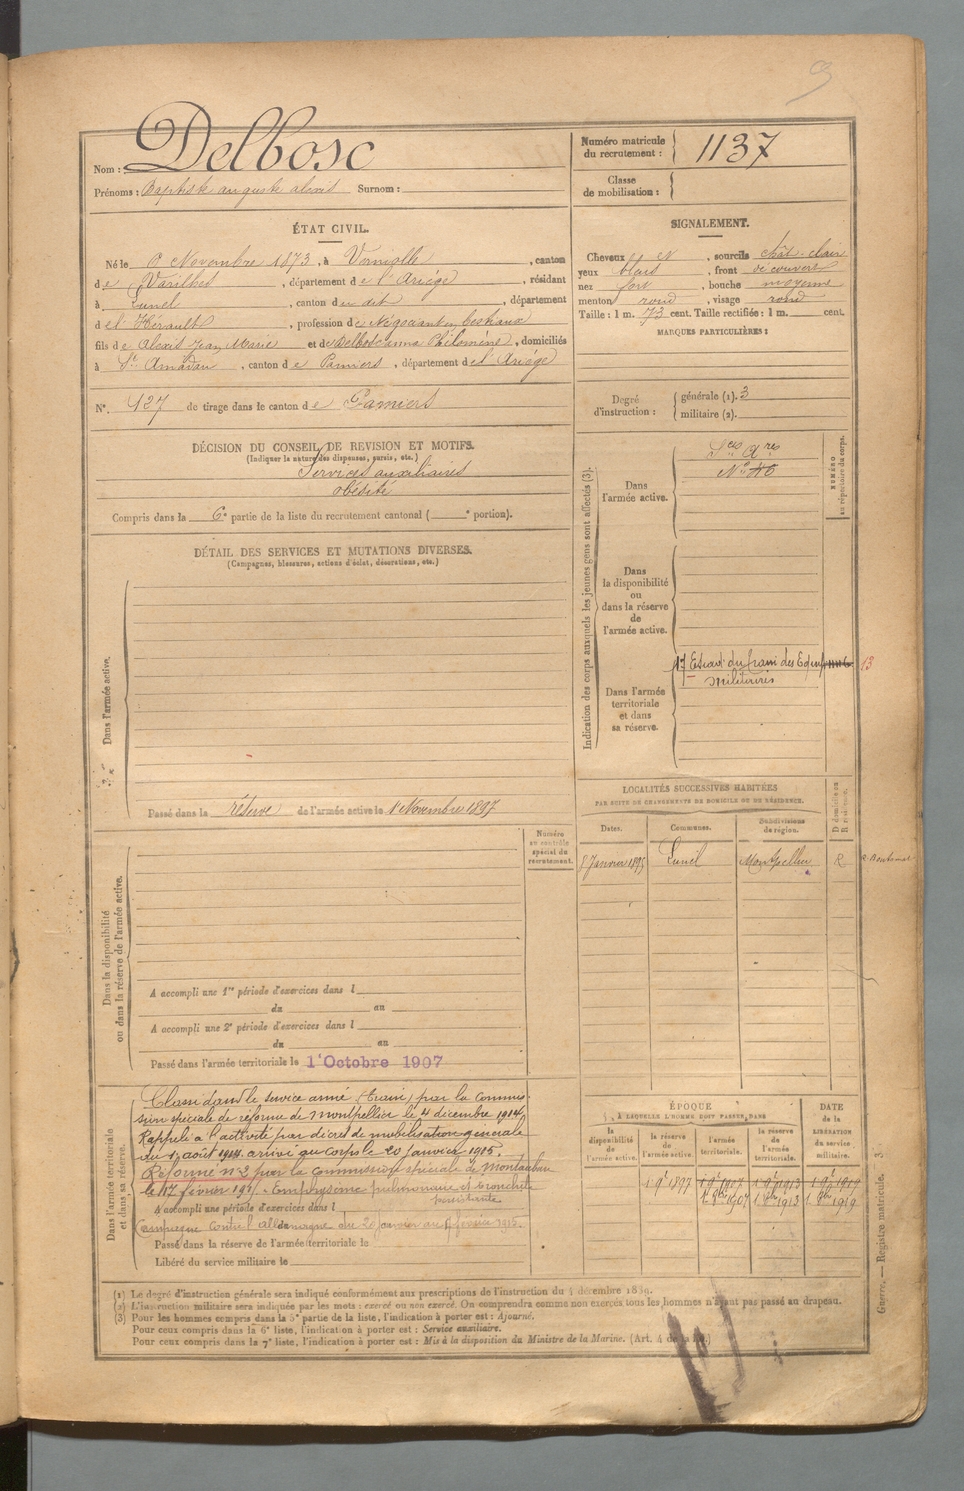 9
Nom : Delbosc
Prénoms : Baptiste auguste alexis Surnom :
Numéro matricule du recrutement : 1137
Classe de mobilisation :
ÉTAT CIVIL.
Né le 8 Novembre 1873, à Verniolle, canton
de Varilhes, département de l'Ariège, résidant
à Lunel, canton du dit, département
d el Hérault, profession de Négociant en bestiaux
fils de Alexis Jean Marie et de Delbosc anna Philomène, domiciliés
à St Amadou, canton de Pamiers, département de l'Ariège
N°. 127 de tirage dans le canton de Pamiers
SIGNALEMENT.
Cheveux et, sourcils chât. clair
yeux bleus, front découvert
nez fort, bouche moyenne
menton rond, visage rond
Taille : 1 m. 73 cent. Taille rectifiée : 1 m. cent.
MARQUES PARTICULIÈRES :
Degré d'instruction : générale (1). 3
militaire (2).
DÉCISION DU CONSEIL DE REVISION ET MOTIFS.
(Indiquer la nature des dispenses, sursis, etc.)
Services auxiliaires
obésité
Compris dans la 6e partie de la liste du recrutement cantonal ( e portion).
DÉTAIL DES SERVICES ET MUTATIONS DIVERSES.
(Campagnes, blessures, actions d'éclat, décorations, etc.)
Dans l'armée active.
Passé dans la réserve de l'armée active le 1er Novembre 1897
Indication des corps auxquels les jeunes gens sont affectés (3).
NUMÉRO au répertoire du corps.
Dans l'armée active.
Sces Ares
N° 40
Dans la disponibilité ou dans la réserve de l'armée active.
Dans l'armée territoriale et dans sa réserve.
17 Escad. du train des Equip
militaires
13
LOCALITÉS SUCCESSIVES HABITÉES
PAR SUITE DE CHANGEMENTS DE DOMICILE OU DE RÉSIDENCE.
Dates. Communes. Subdivisions de région. D domicile ou R résidence.
Janvier 1895 Lunel Montpellier R
Numéro au contrôle spécial du recrutement.
Dans la disponibilité ou dans la réserve de l'armée active.
A accompli une 1re période d'exercices dans l
du au
A accompli une 2e période d'exercices dans l
du au
Passé dans l'armée territoriale le 1er Octobre 1907
Dans l'armée territoriale et dans sa réserve.
Classé dans le service armé (train) par la commis-
sion spéciale de réforme de Montpellier le 4 décembre 1914.
Rappelé à l'activité par décret de mobilisation générale
du 1er août 1914. arrivé au corps le 20 janvier 1915.
Réformé n° 2 par la commission spéciale de Montauban
le 17 février 1915. Emphysème pulmonaire et bronchite
persistante
A accompli une période d'exercices dans l
Campagne contre l'Allemagne du 20 janvier au 17 février 1915.
Passé dans la réserve de l'armée territoriale le
Libéré du service militaire le
ÉPOQUE
À LAQUELLE L'HOMME DOIT PASSER DANS
la disponibilité de l'armée active. la réserve de l'armée active. l'armée territoriale. la réserve de l'armée territoriale.
DATE de la LIBÉRATION du service militaire.
1 9e 1897 1 9e 1907 1 9e 1913 1 9e 1917
1 8bre 1907 1 8bre 1913 1 8bre 1919
(1) Le degré d'instruction générale sera indiqué conformément aux prescriptions de l'instruction du 4 décembre 1889.
(2) L'instruction militaire sera indiquée par les mots : exercé ou non exercé. On comprendra comme non exercés tous les hommes n'ayant pas passé au drapeau.
(3) Pour les hommes compris dans la 5e partie de la liste, l'indication à porter est : Ajourné.
Pour ceux compris dans la 6e liste, l'indication à porter est : Service auxiliaire.
Pour ceux compris dans la 7e liste, l'indication à porter est : Mis à la disposition du Ministre de la Marine. (Art. 4 de la loi.)
Guerre. — Registre matricule. — 3